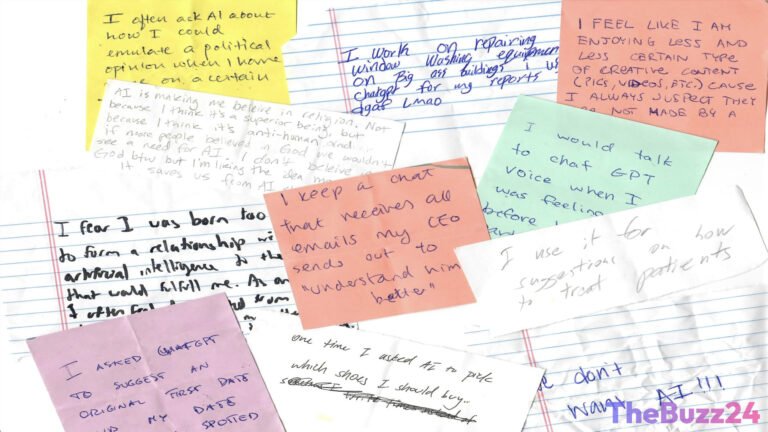 I often ask AI about
how I could
emulate a political
opinion when I have
on a certain
I work on repairing
window washing equipment
on Big ass buildings I us
chatgpt for my reports
dgaf lmao
I FEEL LIKE I AM
ENJOYING LESS AND
LESS CERTAIN TYPE
OF CREATIVE CONTENT
(PICS, VIDEOS, ETC.) CAUSE
I ALWAYS SUSPECT THEY
NOT MADE BY A
AI is making me beleive in religion. Not
because I think it's a superior being, but
because I think it's anti-human and
if more people believed in God we wouldn't
see a need for AI. I don't believe in
God btw but I'm liking the idea
it saves us from AI
I would talk
to chat GPT
voice when I
was feeling
before
I fear I was born too
to form a relationship wi
artificial intelligence to the
that would fulfill me. As an
I often feel from
I keep a chat
that receives all
emails my CEO
sends out to
"understand him
better"
I use it for
suggestions on how
to treat patients
I ASKED CHATGPT
TO SUGGEST AN
ORIGINAL FIRST DATE
MY DATE
SPOTTED
one time I asked AI to pick
which shoes I should buy..
we don't
want AI!!!
TheBuzz24